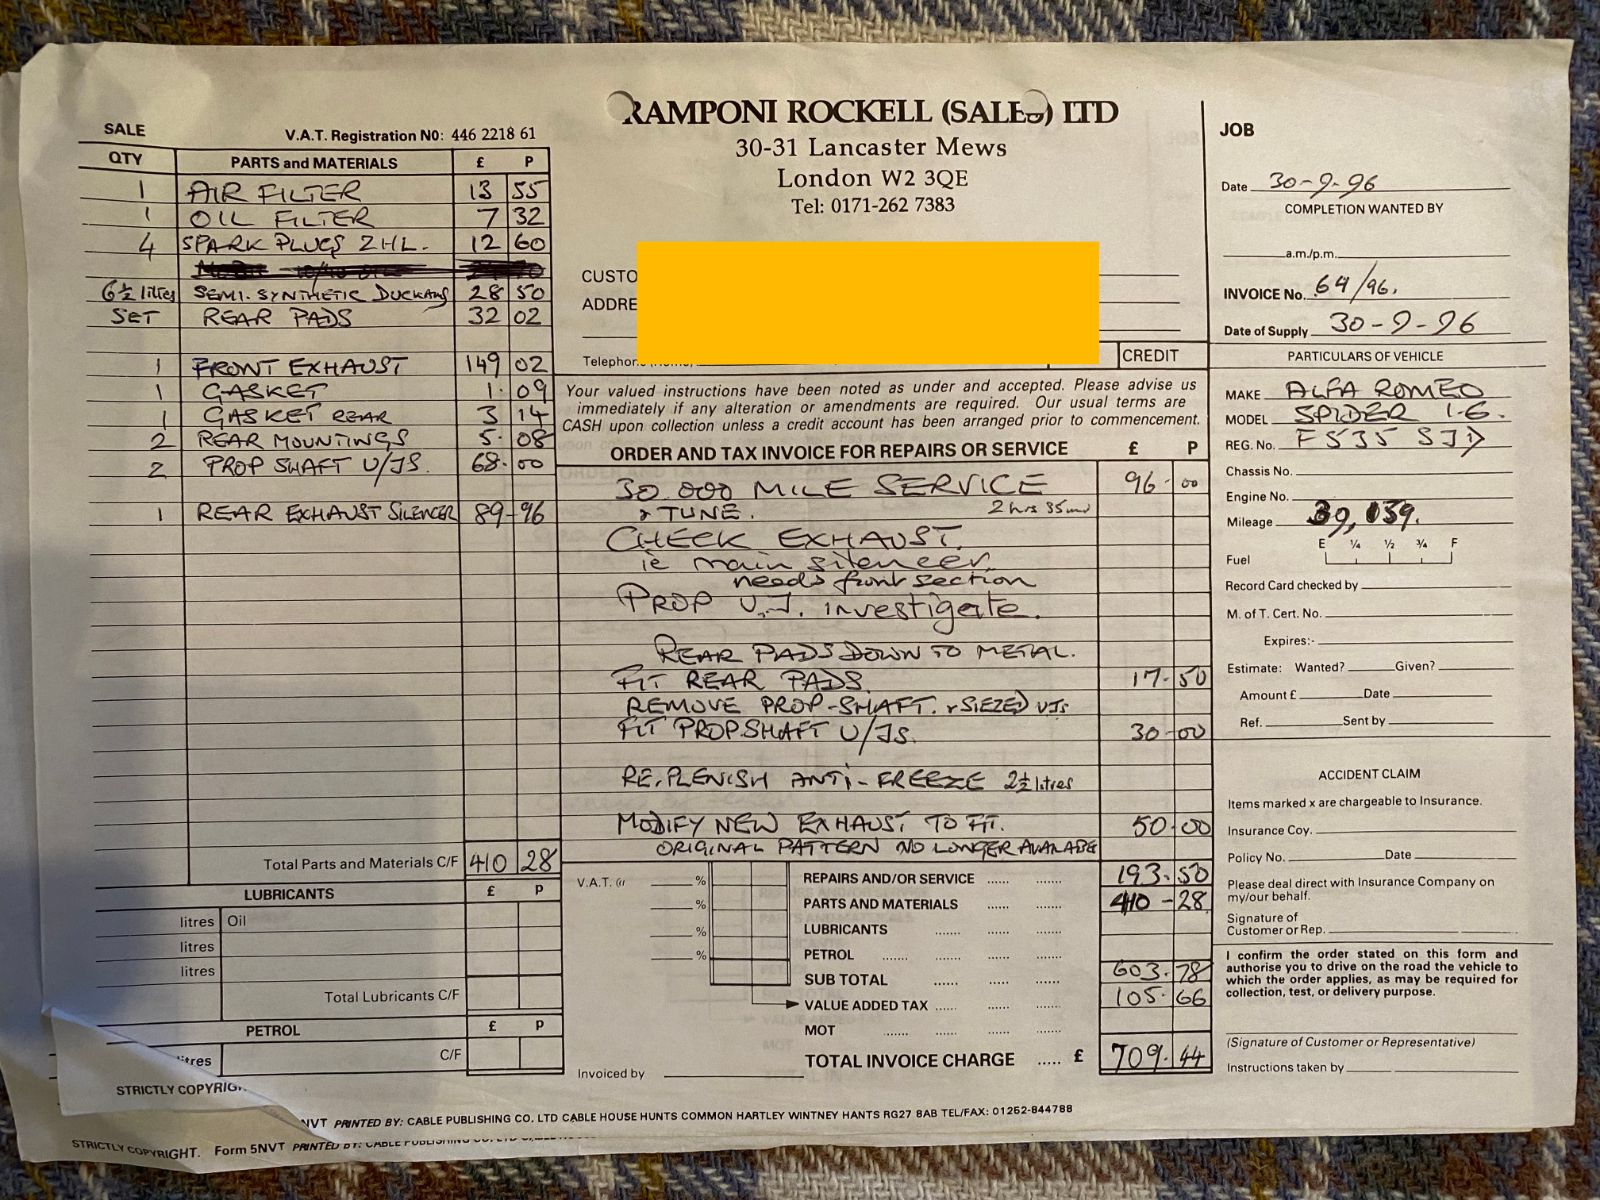 SALE
V.A.T. Registration N0: 446 2218 61
QTY PARTS and MATERIALS £ P
1 AIR FILTER 13 55
1 OIL FILTER 7 32
4 SPARK PLUGS 2HL. 12 60
6½ litres SEMI. SYNTHETIC DUCKAMS 28 50
SET REAR PADS 32 02
1 FRONT EXHAUST 149 02
1 GASKET 1. 09
1 GASKET REAR 3 14
2 REAR MOUNTINGS 5. 08
2 PROP SHAFT U/JS. 68. 00
1 REAR EXHAUST SILENCER 89-96
Total Parts and Materials C/F 410 28
LUBRICANTS £ P
litres Oil
litres
litres
Total Lubricants C/F
PETROL £ P
litres C/F
STRICTLY COPYRIG
RAMPONI ROCKELL (SALES) LTD
30-31 Lancaster Mews
London W2 3QE
Tel: 0171-262 7383
CUSTO
ADDRE
Telephon
CREDIT
Your valued instructions have been noted as under and accepted. Please advise us
immediately if any alteration or amendments are required. Our usual terms are
CASH upon collection unless a credit account has been arranged prior to commencement.
ORDER AND TAX INVOICE FOR REPAIRS OR SERVICE £ P
30.000 MILE SERVICE 96-00
& TUNE. 2 hrs 35
CHECK EXHAUST.
ie main silencer.
needs front section
PROP U.J. investigate.
REAR PADS DOWN TO METAL.
FIT REAR PADS. 17-50
REMOVE PROP-SHAFT. & SIEZED UJs
FIT PROPSHAFT U/JS. 30-00
RE.PLENISH ANTI-FREEZE 2½ litres
MODIFY NEW EXHAUST TO FIT. 50.00
ORIGINAL PATTERN NO LONGER AVAILABE
V.A.T. @ % REPAIRS AND/OR SERVICE ...... ....... 193.50
% PARTS AND MATERIALS ...... ....... 410-28
% LUBRICANTS ....... .......
% PETROL ....... ....... .......
SUB TOTAL ...... ....... 603.78
VALUE ADDED TAX ...... ....... 105.66
MOT ....... ....... .......
TOTAL INVOICE CHARGE ..... £ 709.44
Invoiced by
NVT PRINTED BY: CABLE PUBLISHING CO. LTD CABLE HOUSE HUNTS COMMON HARTLEY WINTNEY HANTS RG27 8AB TEL/FAX: 01252-844788
STRICTLY COPYRIGHT. Form 5NVT PRINTED BY: CABLE PUBLISHING CO. LTD
JOB
Date 30-9-96
COMPLETION WANTED BY
a.m/p.m.
INVOICE No. 64/96.
Date of Supply 30-9-96
PARTICULARS OF VEHICLE
MAKE ALFA ROMEO
MODEL SPIDER 1.6.
REG. No. F535 SJD
Chassis No.
Engine No.
Mileage 39,139.
E ¼ ½ ¾ F
Fuel
Record Card checked by
M. of T. Cert. No.
Expires:-
Estimate: Wanted? Given?
Amount £ Date
Ref. Sent by
ACCIDENT CLAIM
Items marked x are chargeable to Insurance.
Insurance Coy.
Policy No. Date
Please deal direct with Insurance Company on
my/our behalf.
Signature of
Customer or Rep.
I confirm the order stated on this form and
authorise you to drive on the road the vehicle to
which the order applies, as may be required for
collection, test, or delivery purpose.
(Signature of Customer or Representative)
Instructions taken by